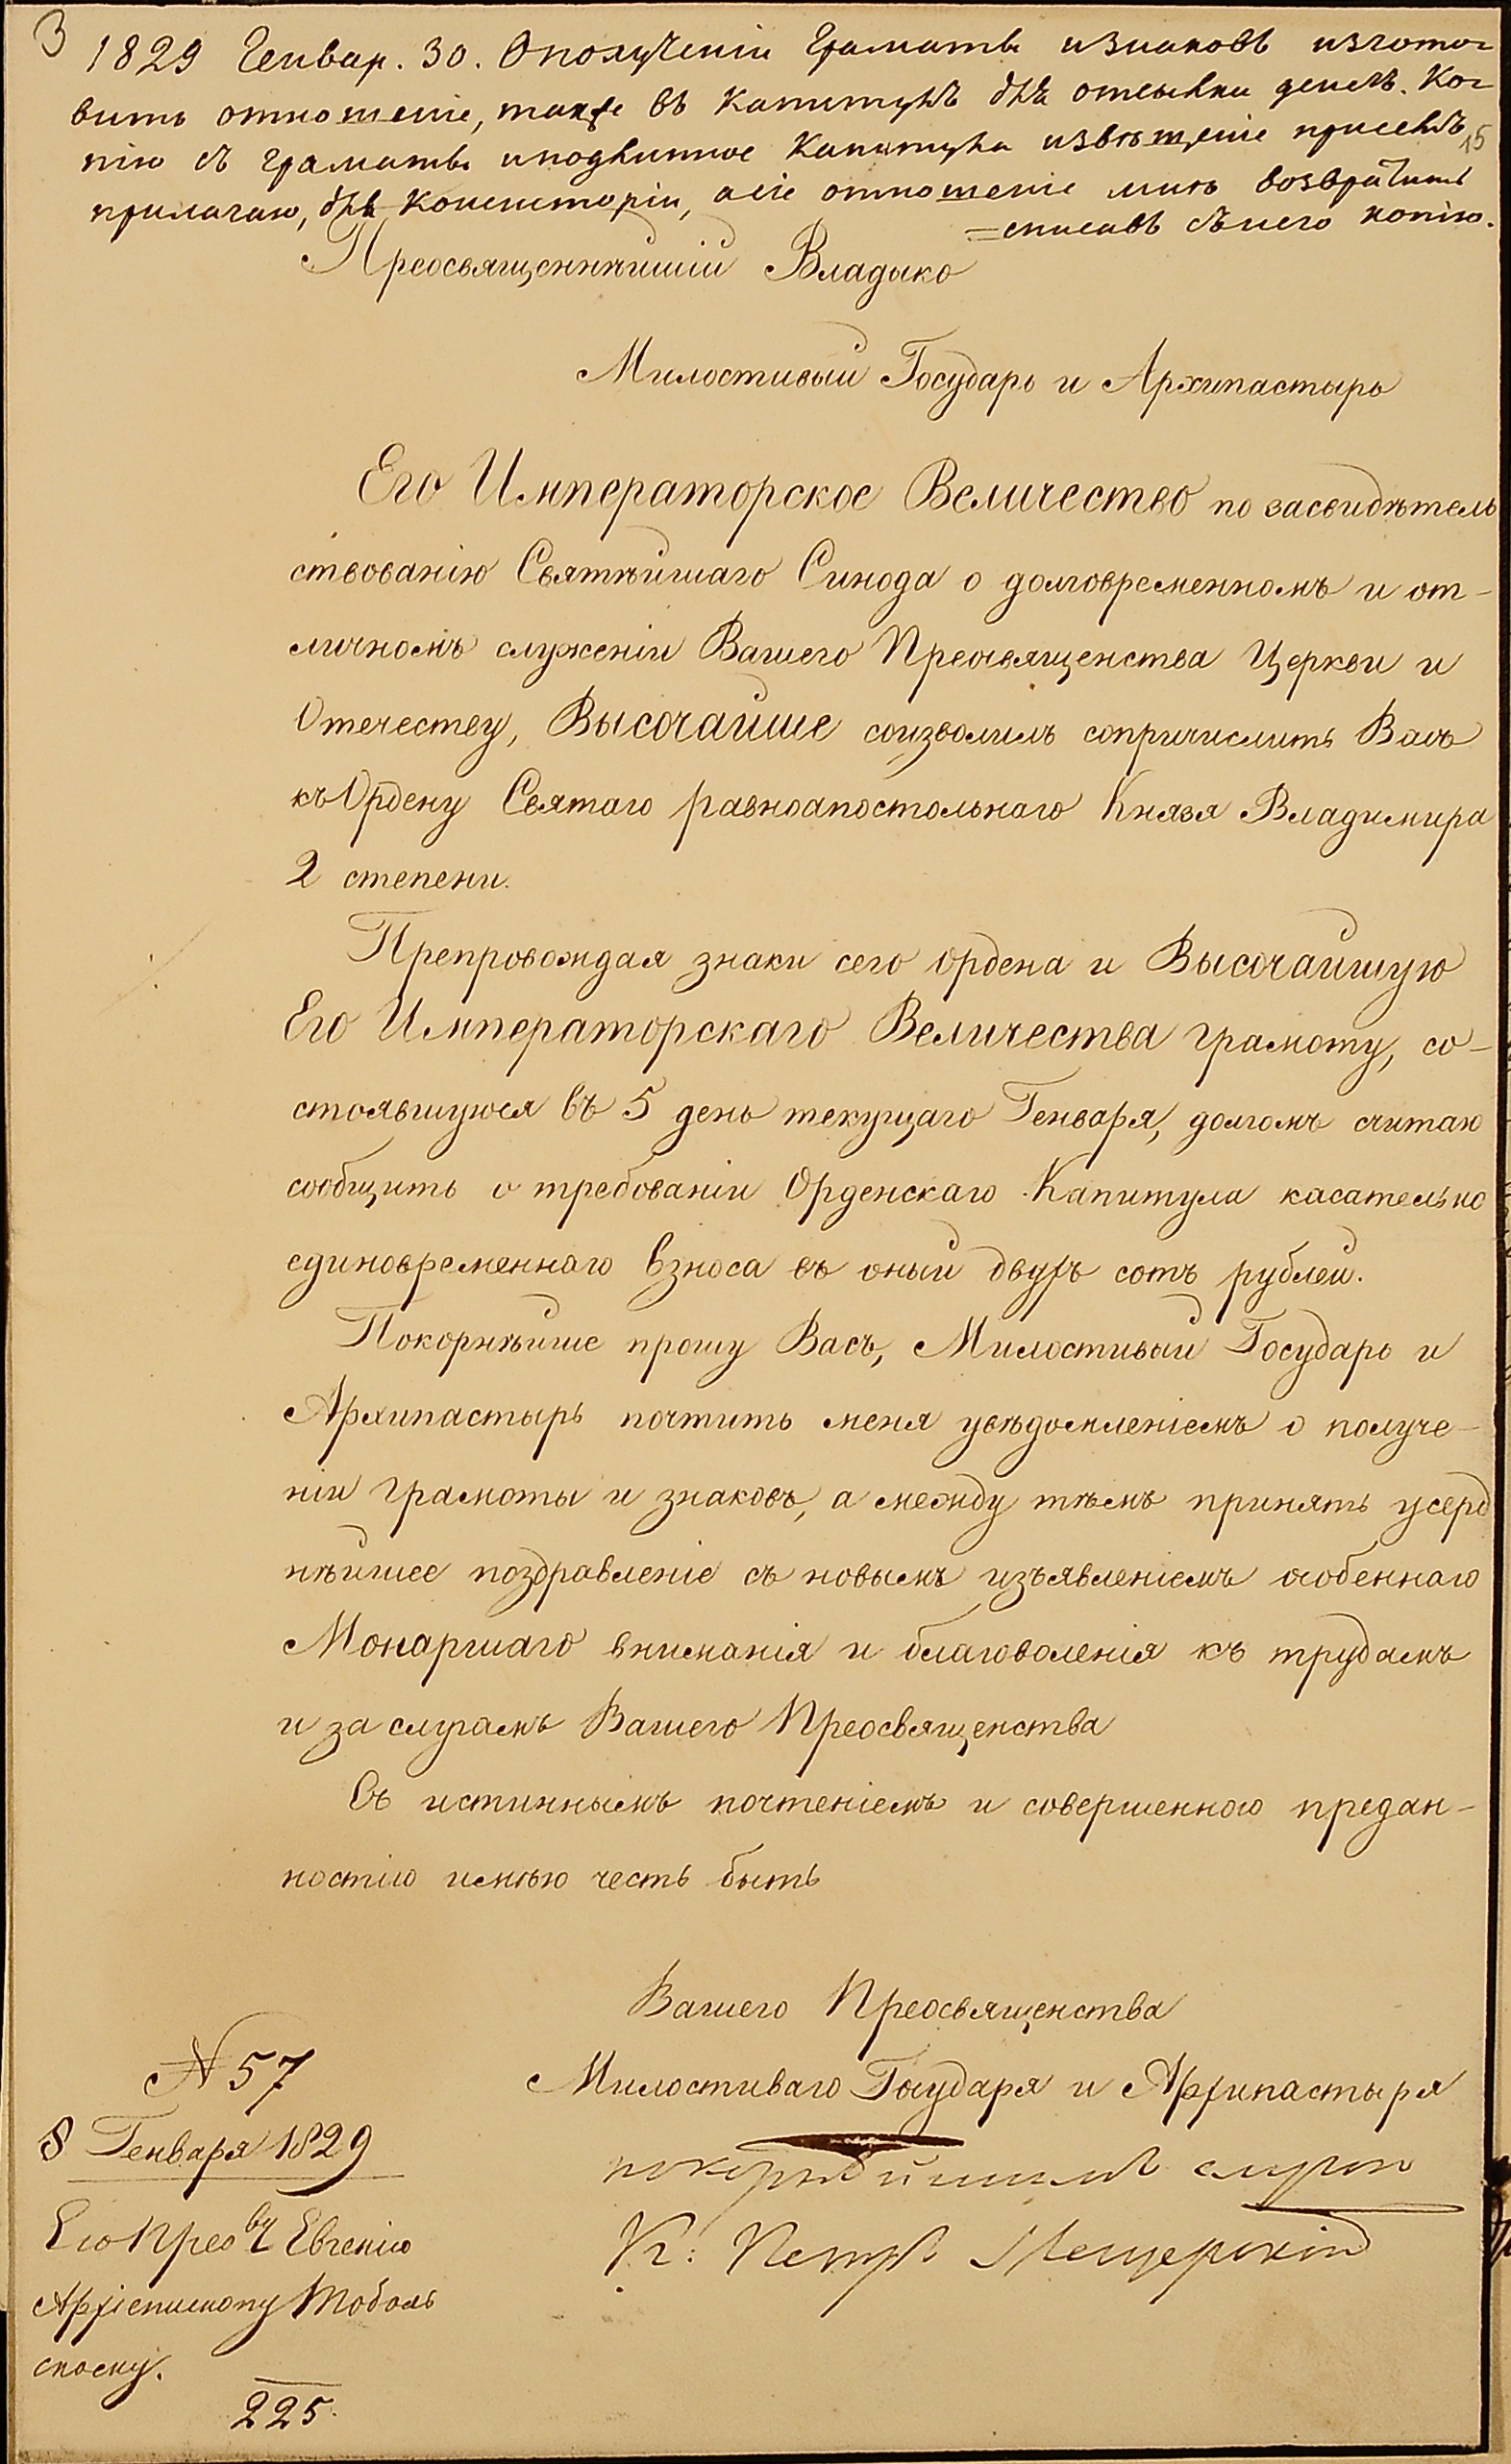 3
1829 Генвар. 30. О получении Граматы и знаковъ изгото-
вить отношеніе, также въ Капитулъ для отсылки денегъ. Ко-
пію съ граматы и подлинное Капитула извѣщеніе при семъ
15
прилагаю, для Консисторіи, а сіе отношеніе мнѣ возвратить
=списавъ съ него копію.
Преосвященнѣйшій Владыко
Милостивый Государь и Архипастырь
Его Императорское Величество по засвидѣтель
ствованію Святѣйшаго Синода о долговременномъ и от-
личномъ служеніи Вашего Преосвященства Церкви и
Отечеству, Высочайше соизволилъ сопричислить Васъ
къ Ордену Святаго равноапостольнаго Князя Владимира
2 степени.
Препровождая знаки сего ордена и Высочайшую
Его Императорскаго Величества грамоту, со-
стоявшуюся въ 5 день текущаго Генваря, долгомъ считаю
сообщить о требованіи Орденскаго Капитула касательно
единовременнаго взноса въ оный двухъ сотъ рублей.
Покорнѣйше прошу Васъ, Милостивый Государь и
Архипастырь почтить меня увѣдомленіемъ о получе-
ніи грамоты и знаковъ, а между тѣмъ принять усерд
нѣйшее поздравленіе съ новымъ изъявленіемъ особеннаго
Монаршаго вниманія и благоволенія къ трудамъ
и заслугамъ Вашего Преосвященства
Съ истиннымъ почтеніемъ и совершенною предан-
ностію имѣю честь быть
Вашего Преосвященства
Милостиваго Государя и Архипастыря
покорнѣйшимъ слугою
К: Петръ Мещерскій
N 57
8 Генваря 1829
Его Преову Евгенію
Архіепископу Тоболь
скому.
225.